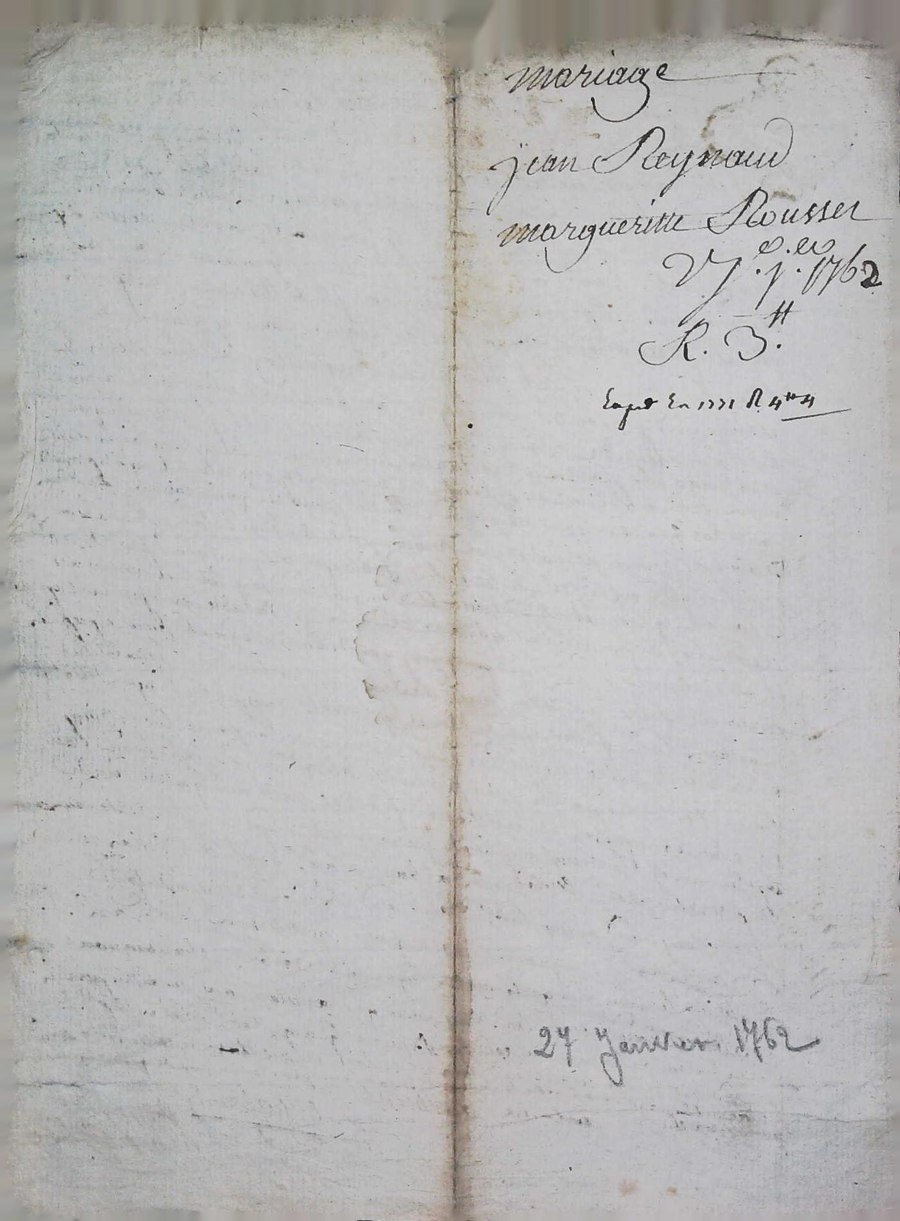 mariage
jean Reynaud
margueritte Rousset
27 j.er 1762
R. 3.tt
En 1771 R 4tt 4
27 Janvier 1762